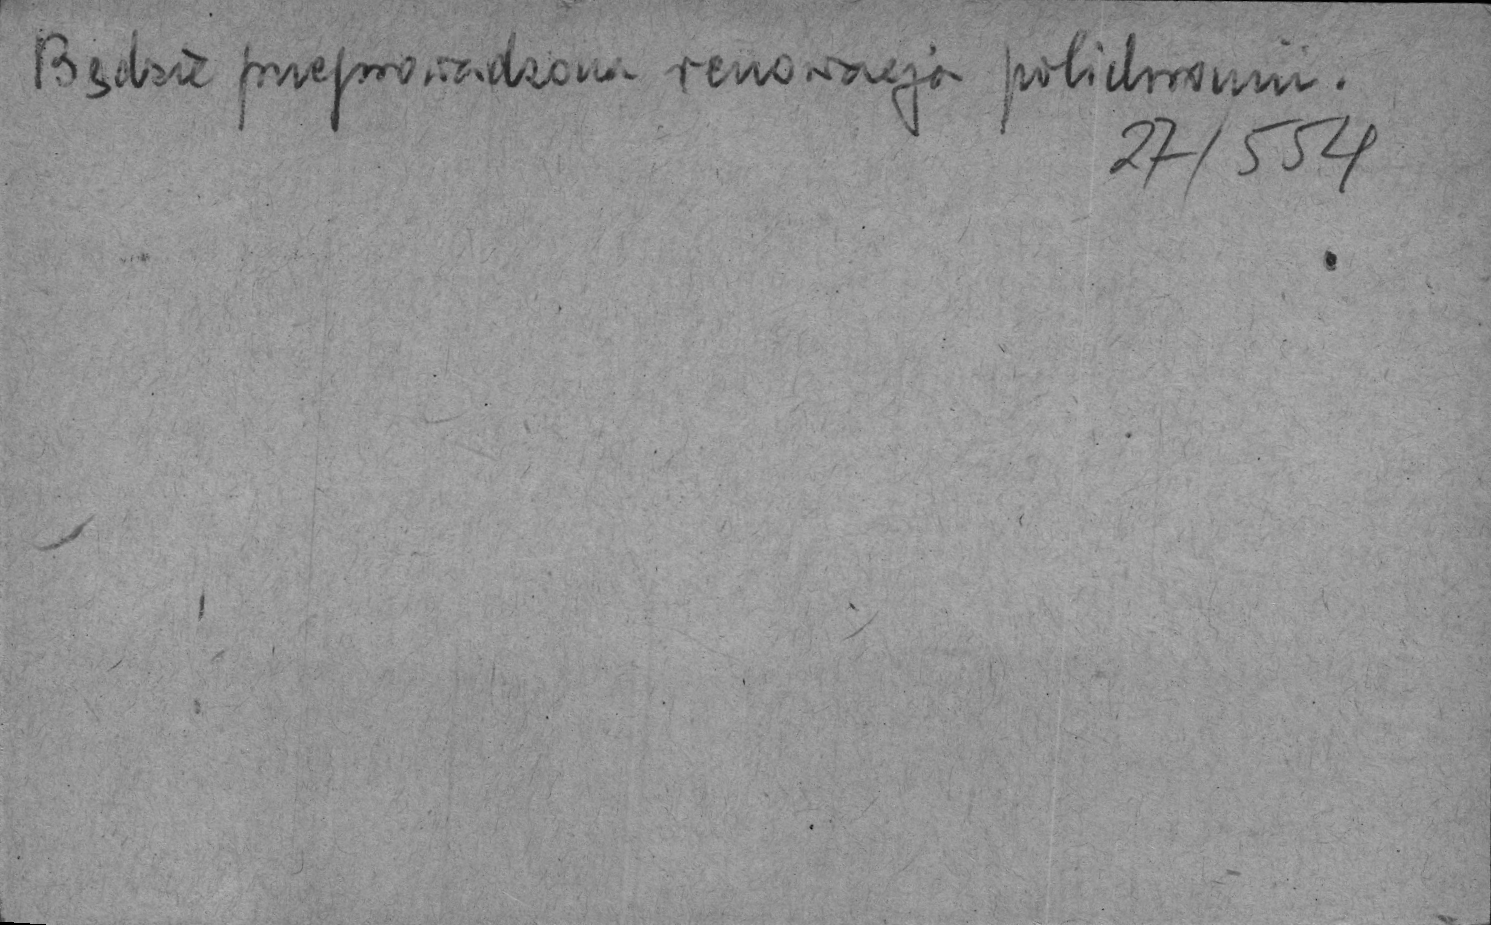 Będzie przeprowadzona renowacja polichromii.
27/554